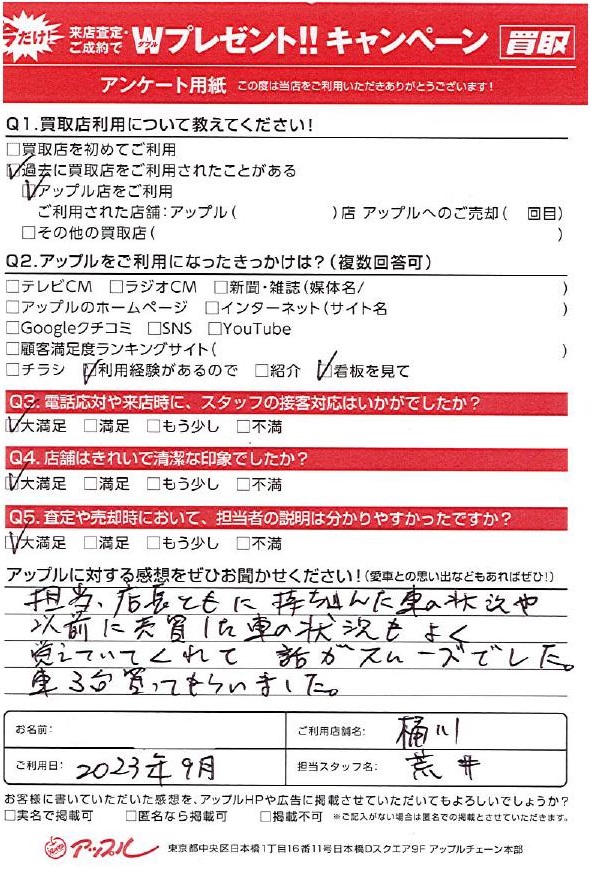 今だけ!
来店査定・
ご成約で
Wプレゼント!! キャンペーン 買取
ダブル
アンケート用紙 この度は当店をご利用いただきありがとうございます!
Q1.買取店利用について教えてください!
□買取店を初めてご利用
☑過去に買取店をご利用されたことがある
☑アップル店をご利用
ご利用された店舗:アップル( )店 アップルへのご売却( 回目)
□その他の買取店( )
Q2.アップルをご利用になったきっかけは?(複数回答可)
□テレビCM □ラジオCM □新聞・雑誌(媒体名/ )
□アップルのホームページ □インターネット(サイト名 )
□Googleクチコミ □SNS □YouTube
□顧客満足度ランキングサイト( )
□チラシ ☑利用経験があるので □紹介 ☑看板を見て
Q3.電話応対や来店時に、スタッフの接客対応はいかがでしたか?
☑大満足 □満足 □もう少し □不満
Q4.店舗はきれいで清潔な印象でしたか?
☑大満足 □満足 □もう少し □不満
Q5.査定や売却時において、担当者の説明は分かりやすかったですか?
☑大満足 □満足 □もう少し □不満
アップルに対する感想をぜひお聞かせください!(愛車との思い出などもあればぜひ!)
担当、店長ともに 持ち込んだ車の状況や
以前に売買した車の状況も よく
覚えていてくれて 話がスムーズでした。
車3台買ってもらいました。
お名前: ご利用店舗名: 桶川
ご利用日: 2023年9月 担当スタッフ名: 荒井
お客様に書いていただいた感想を、アップルHPや広告に掲載させていただいてもよろしいでしょうか?
□実名で掲載可 □匿名なら掲載可 □掲載不可 ※ご記入がない場合は匿名での掲載とさせていただきます。
アップル 東京都中央区日本橋1丁目16番11号日本橋Dスクエア9F アップルチェーン本部